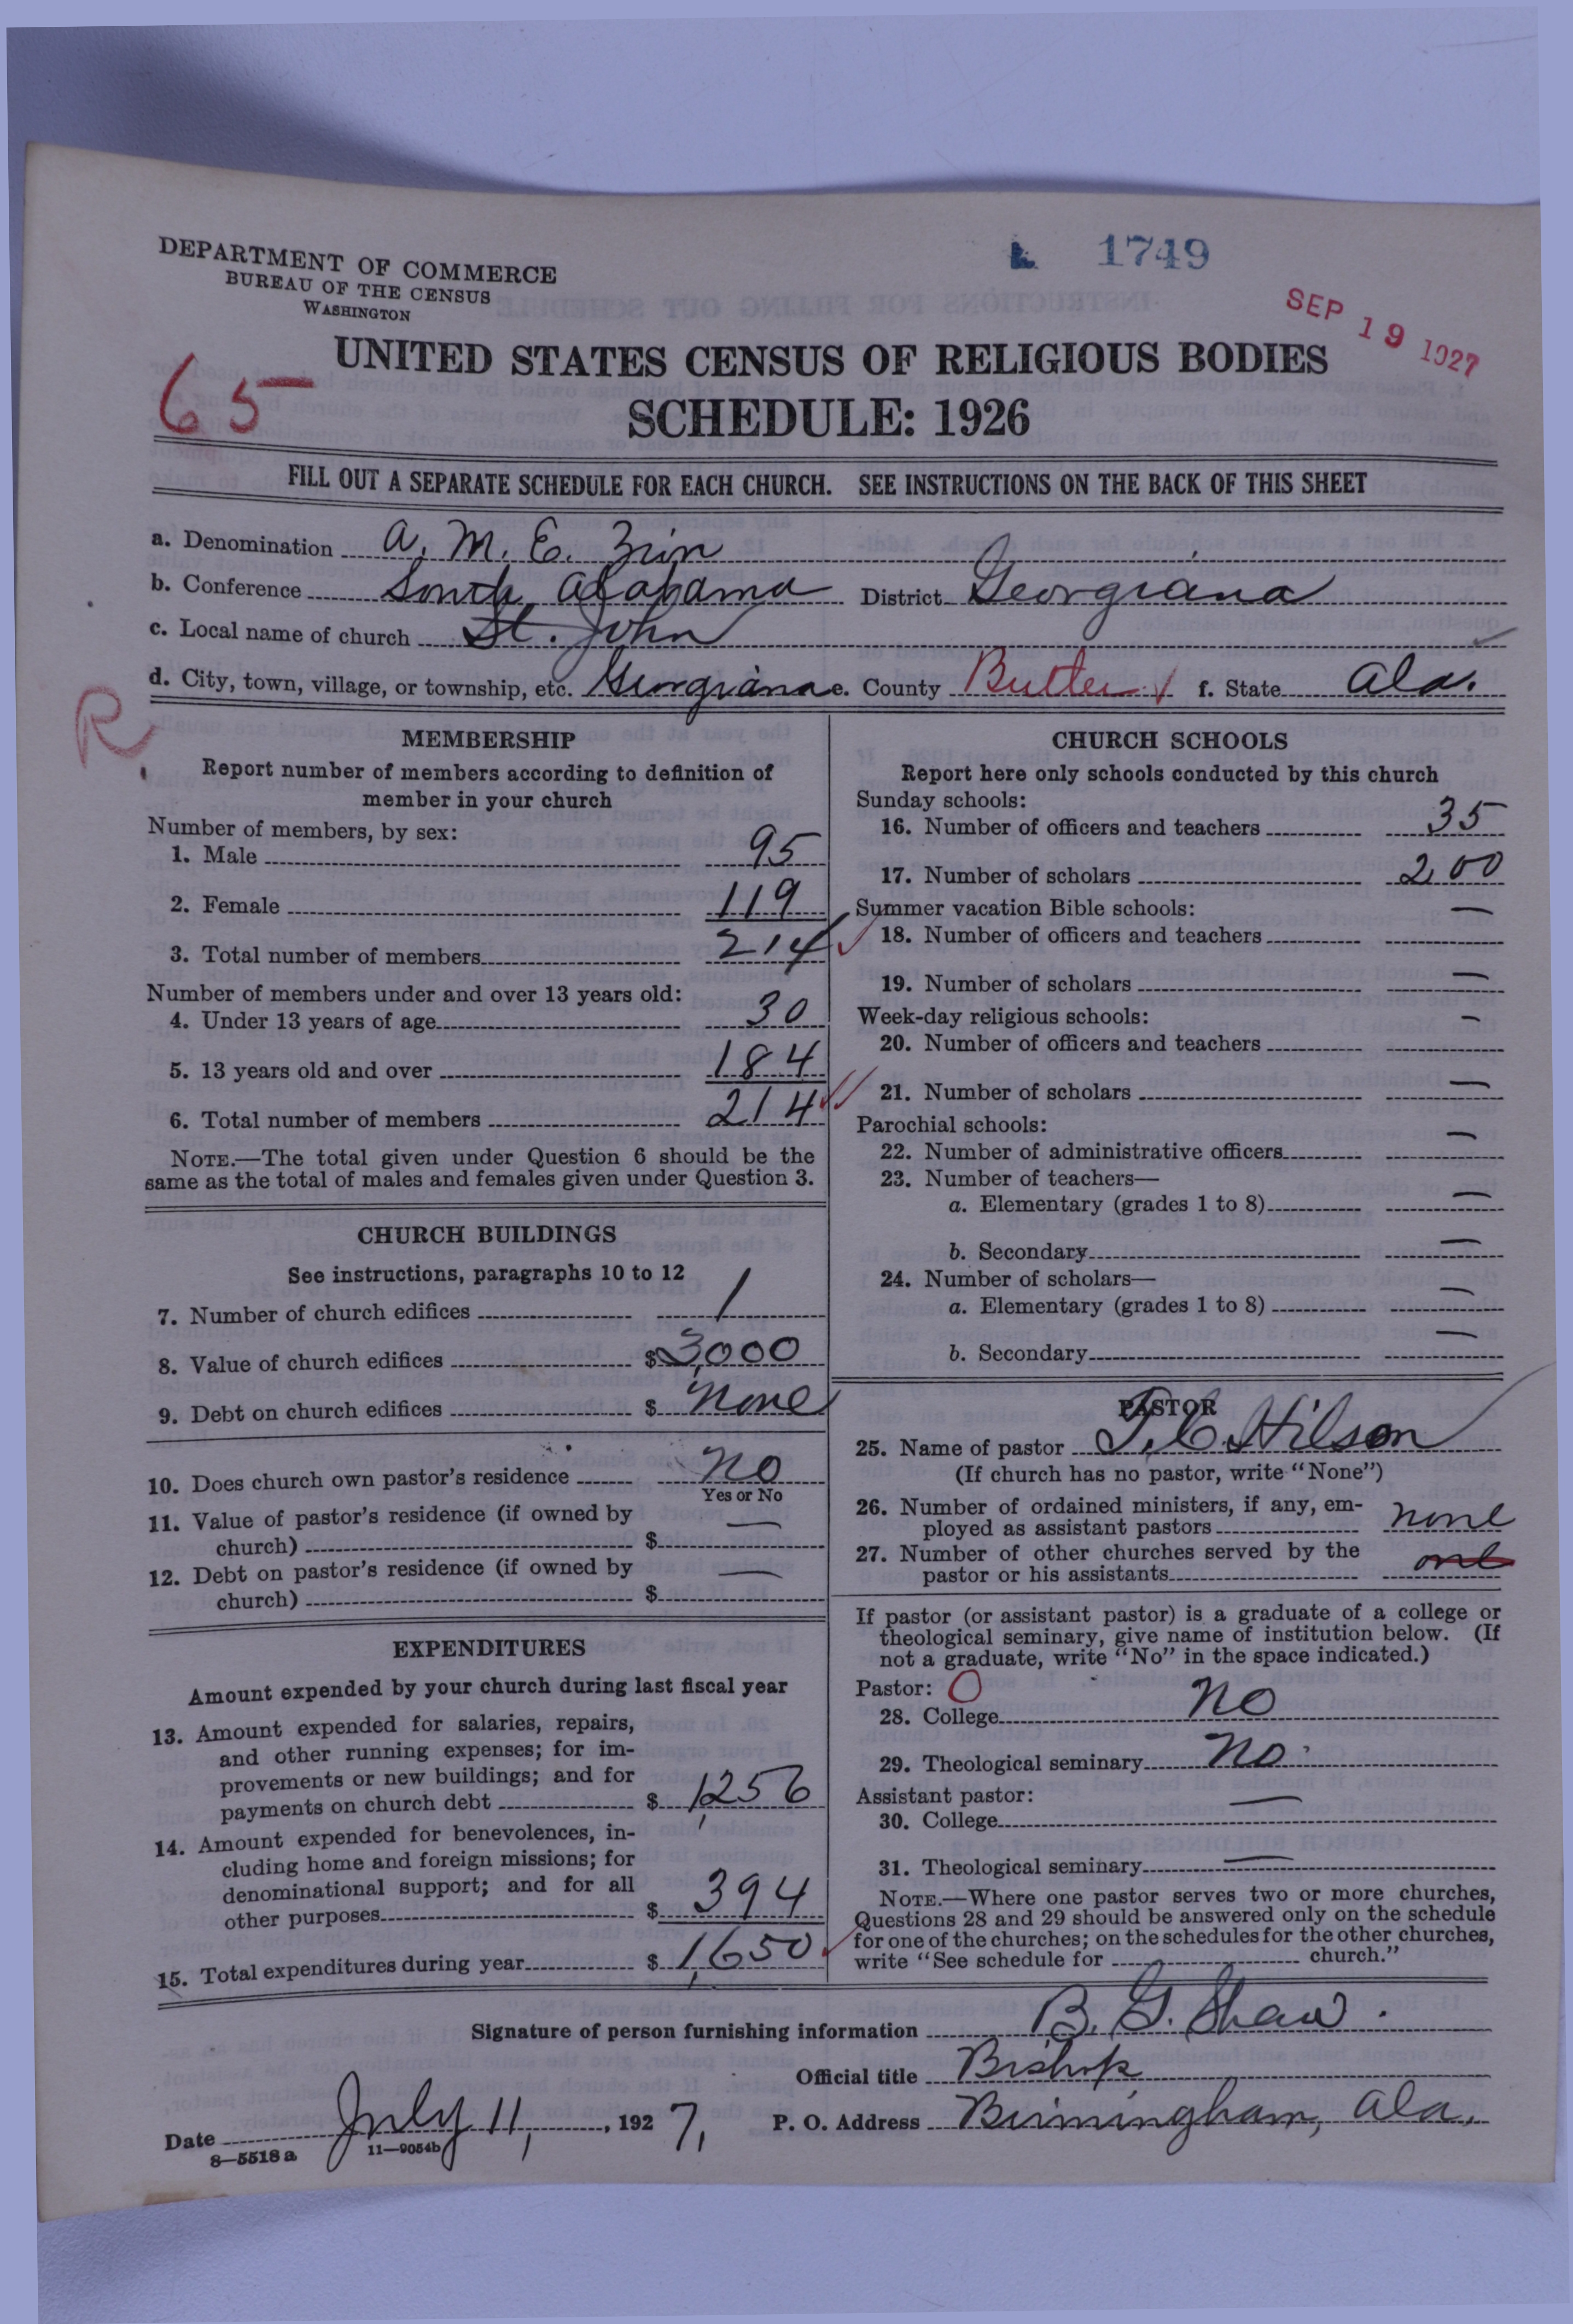 DEPARTMENT OF COMMERCE
BUREAU OF THE CENSUS
WASHINGTON
1749
SEP 19 1927
65
UNITED STATES CENSUS OF RELIGIOUS BODIES
SCHEDULE: 1926
FILL OUT A SEPARATE SCHEDULE FOR EACH CHURCH. SEE INSTRUCTIONS ON THE BACK OF THIS SHEET
a. Denomination A. M. E. Zion
b. Conference South Alabama District Georgiana
c. Local name of church St. John
d. City, town, village, or township, etc. Georgiana e. County Butler f. State Ala.
R
MEMBERSHIP
Report number of members according to definition of
member in your church
Number of members, by sex:
1. Male 95
2. Female 119
3. Total number of members 214
Number of members under and over 13 years old:
4. Under 13 years of age 30
5. 13 years old and over 184
6. Total number of members 214
NOTE.—The total given under Question 6 should be the
same as the total of males and females given under Question 3.
CHURCH BUILDINGS
See instructions, paragraphs 10 to 12
7. Number of church edifices 1
8. Value of church edifices $3,000
9. Debt on church edifices $ None
10. Does church own pastor's residence No
Yes or No
11. Value of pastor's residence (if owned by
church) $ —
12. Debt on pastor's residence (if owned by
church) $ —
EXPENDITURES
Amount expended by your church during last fiscal year
13. Amount expended for salaries, repairs,
and other running expenses; for im-
provements or new buildings; and for
payments on church debt $ 1,256
14. Amount expended for benevolences, in-
cluding home and foreign missions; for
denominational support; and for all
other purposes $ 394
15. Total expenditures during year $ 1,650
CHURCH SCHOOLS
Report here only schools conducted by this church
Sunday schools:
16. Number of officers and teachers 35
17. Number of scholars 200
Summer vacation Bible schools: —
18. Number of officers and teachers
19. Number of scholars —
Week-day religious schools: —
20. Number of officers and teachers
21. Number of scholars —
Parochial schools:
22. Number of administrative officers —
23. Number of teachers—
a. Elementary (grades 1 to 8) —
b. Secondary —
24. Number of scholars—
a. Elementary (grades 1 to 8) —
b. Secondary —
PASTOR
25. Name of pastor T. C. Hilson
(If church has no pastor, write "None")
26. Number of ordained ministers, if any, em-
ployed as assistant pastors none
27. Number of other churches served by the
pastor or his assistants one
If pastor (or assistant pastor) is a graduate of a college or
theological seminary, give name of institution below. (If
not a graduate, write "No" in the space indicated.)
Pastor: O
28. College No
29. Theological seminary No
Assistant pastor: —
30. College
31. Theological seminary —
NOTE.—Where one pastor serves two or more churches,
Questions 28 and 29 should be answered only on the schedule
for one of the churches; on the schedules for the other churches,
write "See schedule for church."
Signature of person furnishing information B. G. Shaw.
Official title Bishop
Date July 11, 1927, P. O. Address Birmingham, Ala.
8—5518a 11—9054b